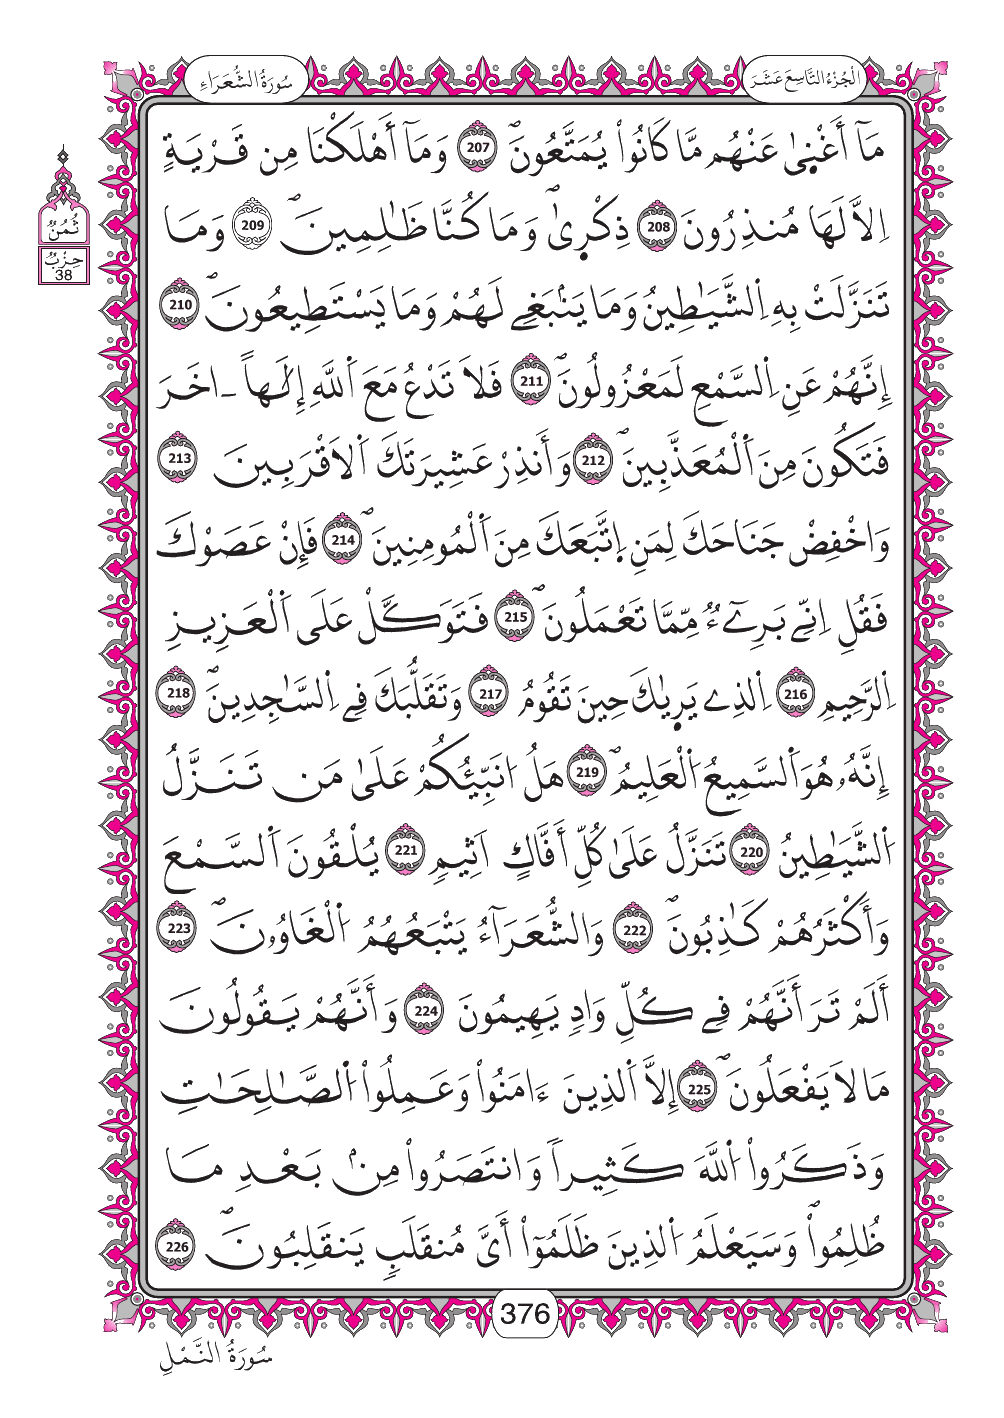 سُورَةُ الشُّعَرَاءِ
اَلْجُزْءُ التَّاسِعَ عَشَرَ
مَآ أَغْن۪يٰ عَنْهُم مَّا كَانُواْ يُمَتَّعُونَۖ 207 وَمَآ أَهْلَكْنَا مِن قَرْيَةٍ
اِلاَّ لَهَا مُنذِرُونَ 208 ذِكْر۪يٰۖ وَمَا كُنَّا ظَٰلِمِينَۖ 209 وَمَا
تَنَزَّلَتْ بِهِ اِ۬لشَّيَٰطِينُ وَمَا يَنۢبَغِے لَهُمْ وَمَا يَسْتَطِيعُونَۖ 210
إِنَّهُمْ عَنِ اِ۬لسَّمْعِ لَمَعْزُولُونَۖ 211 فَلاَ تَدْعُ مَعَ اَ۬للَّهِ إِلَٰهاً ـ اخَرَ
فَتَكُونَ مِنَ اَ۬لْمُعَذَّبِينَۖ 212 وَأَنذِرْ عَشِيرَتَكَ اَ۬لاَقْرَبِينَ 213
وَاخْفِضْ جَنَاحَكَ لِمَنِ اِ۪تَّبَعَكَ مِنَ اَ۬لْمُومِنِينَۖ 214 فَإِنْ عَصَوْكَ
فَقُلِ اِنِّے بَرِےٓءٞ مِّمَّا تَعْمَلُونَۖ 215 فَتَوَكَّلْ عَلَى اَ۬لْعَزِيزِ
اِ۬لرَّحِيمِ 216 اِ۬لذِے يَر۪يٰكَ حِينَ تَقُومُ 217 وَتَقَلُّبَكَ فِے اِ۬لسَّٰجِدِينَۖ 218
إِنَّهُۥ هُوَ اَ۬لسَّمِيعُ اُ۬لْعَلِيمُۖ 219 هَلُ ا۟نَبِّئُكُمْ عَلَىٰ مَن تَنَزَّلُ
اُ۬لشَّيَٰطِينُ 220 تَنَزَّلُ عَلَىٰ كُلِّ أَفَّاكٍ اَثِيمٖ 221 يُلْقُونَ اَ۬لسَّمْعَ
وَأَكْثَرُهُمْ كَٰذِبُونَۖ 222 وَالشُّعَرَآءُ يَتْبَعُهُمُ اُ۬لْغَاوُۥنَۖ 223
أَلَمْ تَرَ أَنَّهُمْ فِے كُلِّ وَادٖ يَهِيمُونَ 224 وَأَنَّهُمْ يَقُولُونَ
مَا لاَ يَفْعَلُونَۖ 225 إِلاَّ اَ۬لذِينَ ءَامَنُواْ وَعَمِلُواْ اُ۬لصَّٰلِحَٰتِ
وَذَكَرُواْ اُ۬للَّهَ كَثِيراٗ وَانتَصَرُواْ مِنۢ بَعْدِ مَا
ظُلِمُواْۖ وَسَيَعْلَمُ اُ۬لذِينَ ظَلَمُوٓاْ أَيَّ مُنقَلَبٖ يَنقَلِبُونَۖ 226
ثُمُنٌ
حِزْبٌ
38
376
سُورَةُ النَّمْلِ